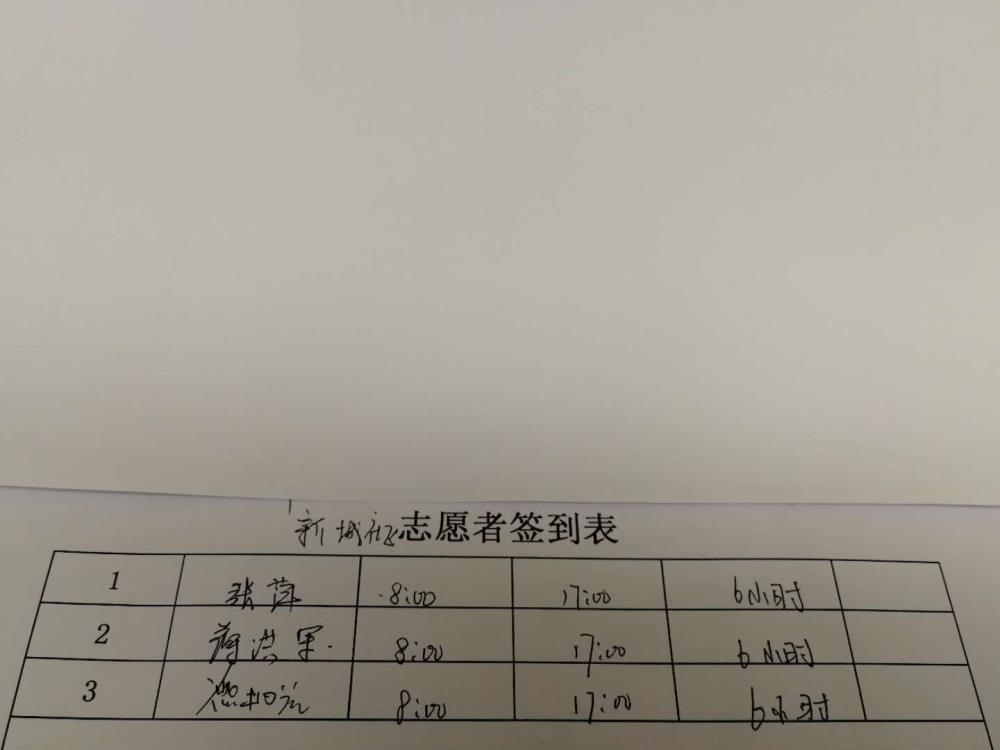 新城社区志愿者签到表
1 张萍 8:00 17:00 6小时
2 蒋洪军 8:00 17:00 6小时
3 8:00 17:00 6小时